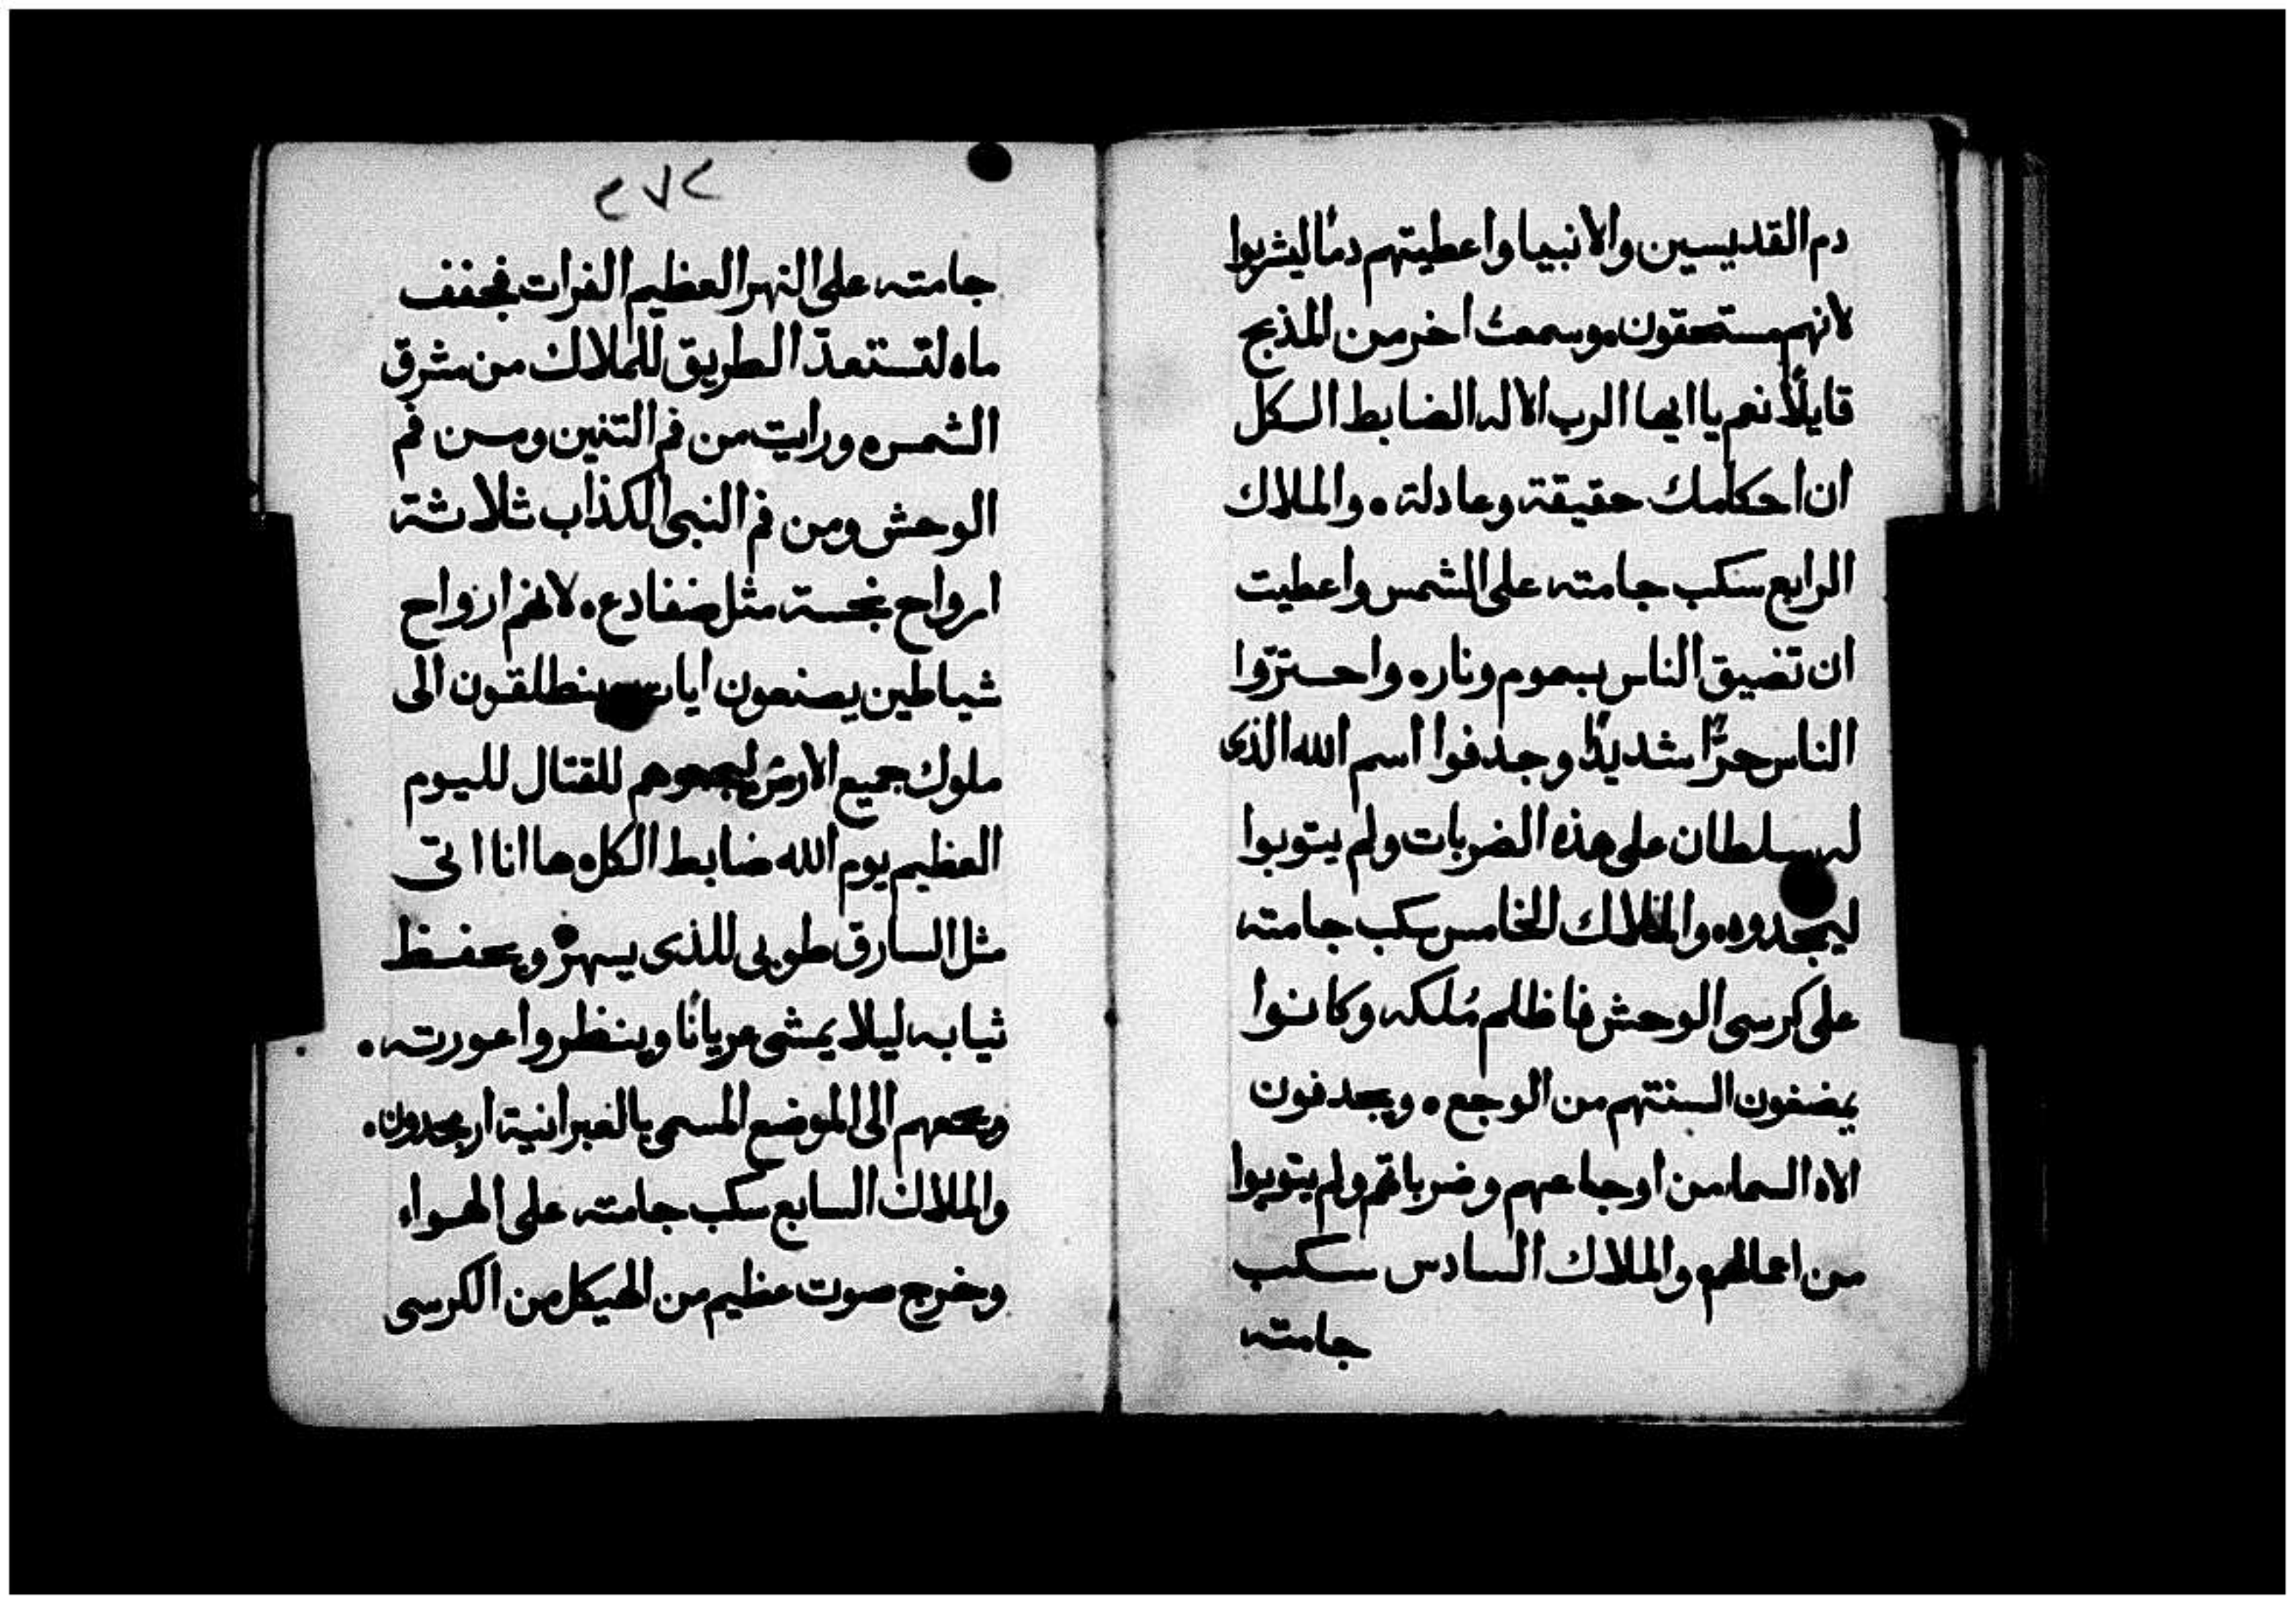 دم القديسين والانبيا واعطيتهم دمًا ليشربوا
لانهم مستحقون، وسمعت اخر من المذبح
قايلًا نعم يا ايها الرب الاله الضابط الكل
ان احكامك حقيقة وعادلة . والملاك
الرابع سكب جامته على الشمس واعطيت
ان تضيق الناس بسموم ونار. واحترّوا
الناس حرًّا شديدًا وجدفوا اسم الله الذى
له سلطان على هذه الضربات ولم يتوبوا
ليمجدوه. والملاك الخامس سكب جامته
على كرسى الوحش فاظلم مُلكه وكانوا
يمضغون السنتهم من الوجع . ويجدفون
الاه السما من اوجاعهم وضرباتهم ولم يتوبوا
من اعمالهم والملاك السادس سكب
جامته
٢٧٢
جامته على النهر العظيم الفرات فجفف
ماه لتستعدّ الطريق للملاك من مشرق
الشمس. ورايت من فم التنين ومن فم
الوحش ومن فم النبى الكذاب ثلاثة
ارواح نجسة مثل ضفادع. لانهم ارواح
شياطين يصنعون ايات ينطلقون الى
ملوك جميع الارض ليجمعوهم للقتال لليوم
العظيم يوم الله ضابط الكل. ها انا اتى
مثل السارق طوبى للذى يسهر ويحفظ
ثيابه ليلا يمشى عريانًا وينظروا عورته .
ويجمعهم الى الموضع المسمى بالعبرانية ارمجدون.
والملاك السابع سكب جامته على الهواء
وخرج صوت عظيم من الهيكل من الكرسى